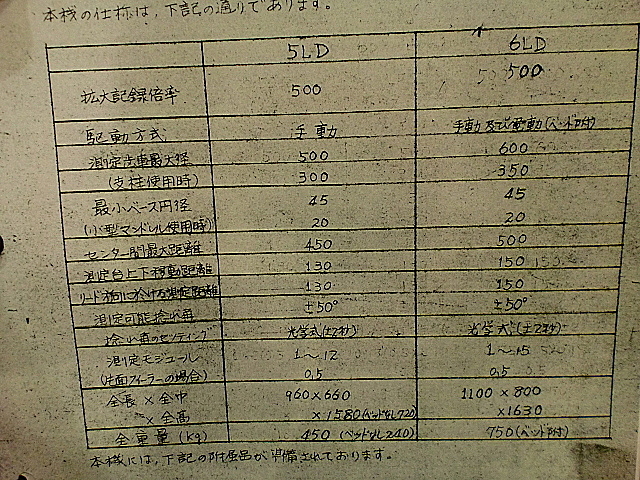 本機の仕様は、下記の通りであります。
5LD 6LD
拡大記録倍率 500 500
駆動方式 手動 手動及び電動(ベッド附)
測定歯車最大径 500 600
(支柱使用時) 300 350
最小ベース円径 45 45
(小型マンドレル使用時) 20 20
センター間最大距離 450 500
測定台上下移動距離 130 150
リード方向に於ける測定距離 130 150
測定可能捻れ角 ±50° ±50°
捻れ角のセッティング 光学式(±2秒) 光学式(±2秒)
測定モジュール 1〜12 1〜15
(片面フィーラーの場合) 0.5 0.5
全長×全巾 960×660 1100×800
×全高 ×1580(ベッド無し720) ×1630
全重量(Kg) 450(ベッド無し240) 750(ベット附)
本機には、下記の附属品が準備されております。